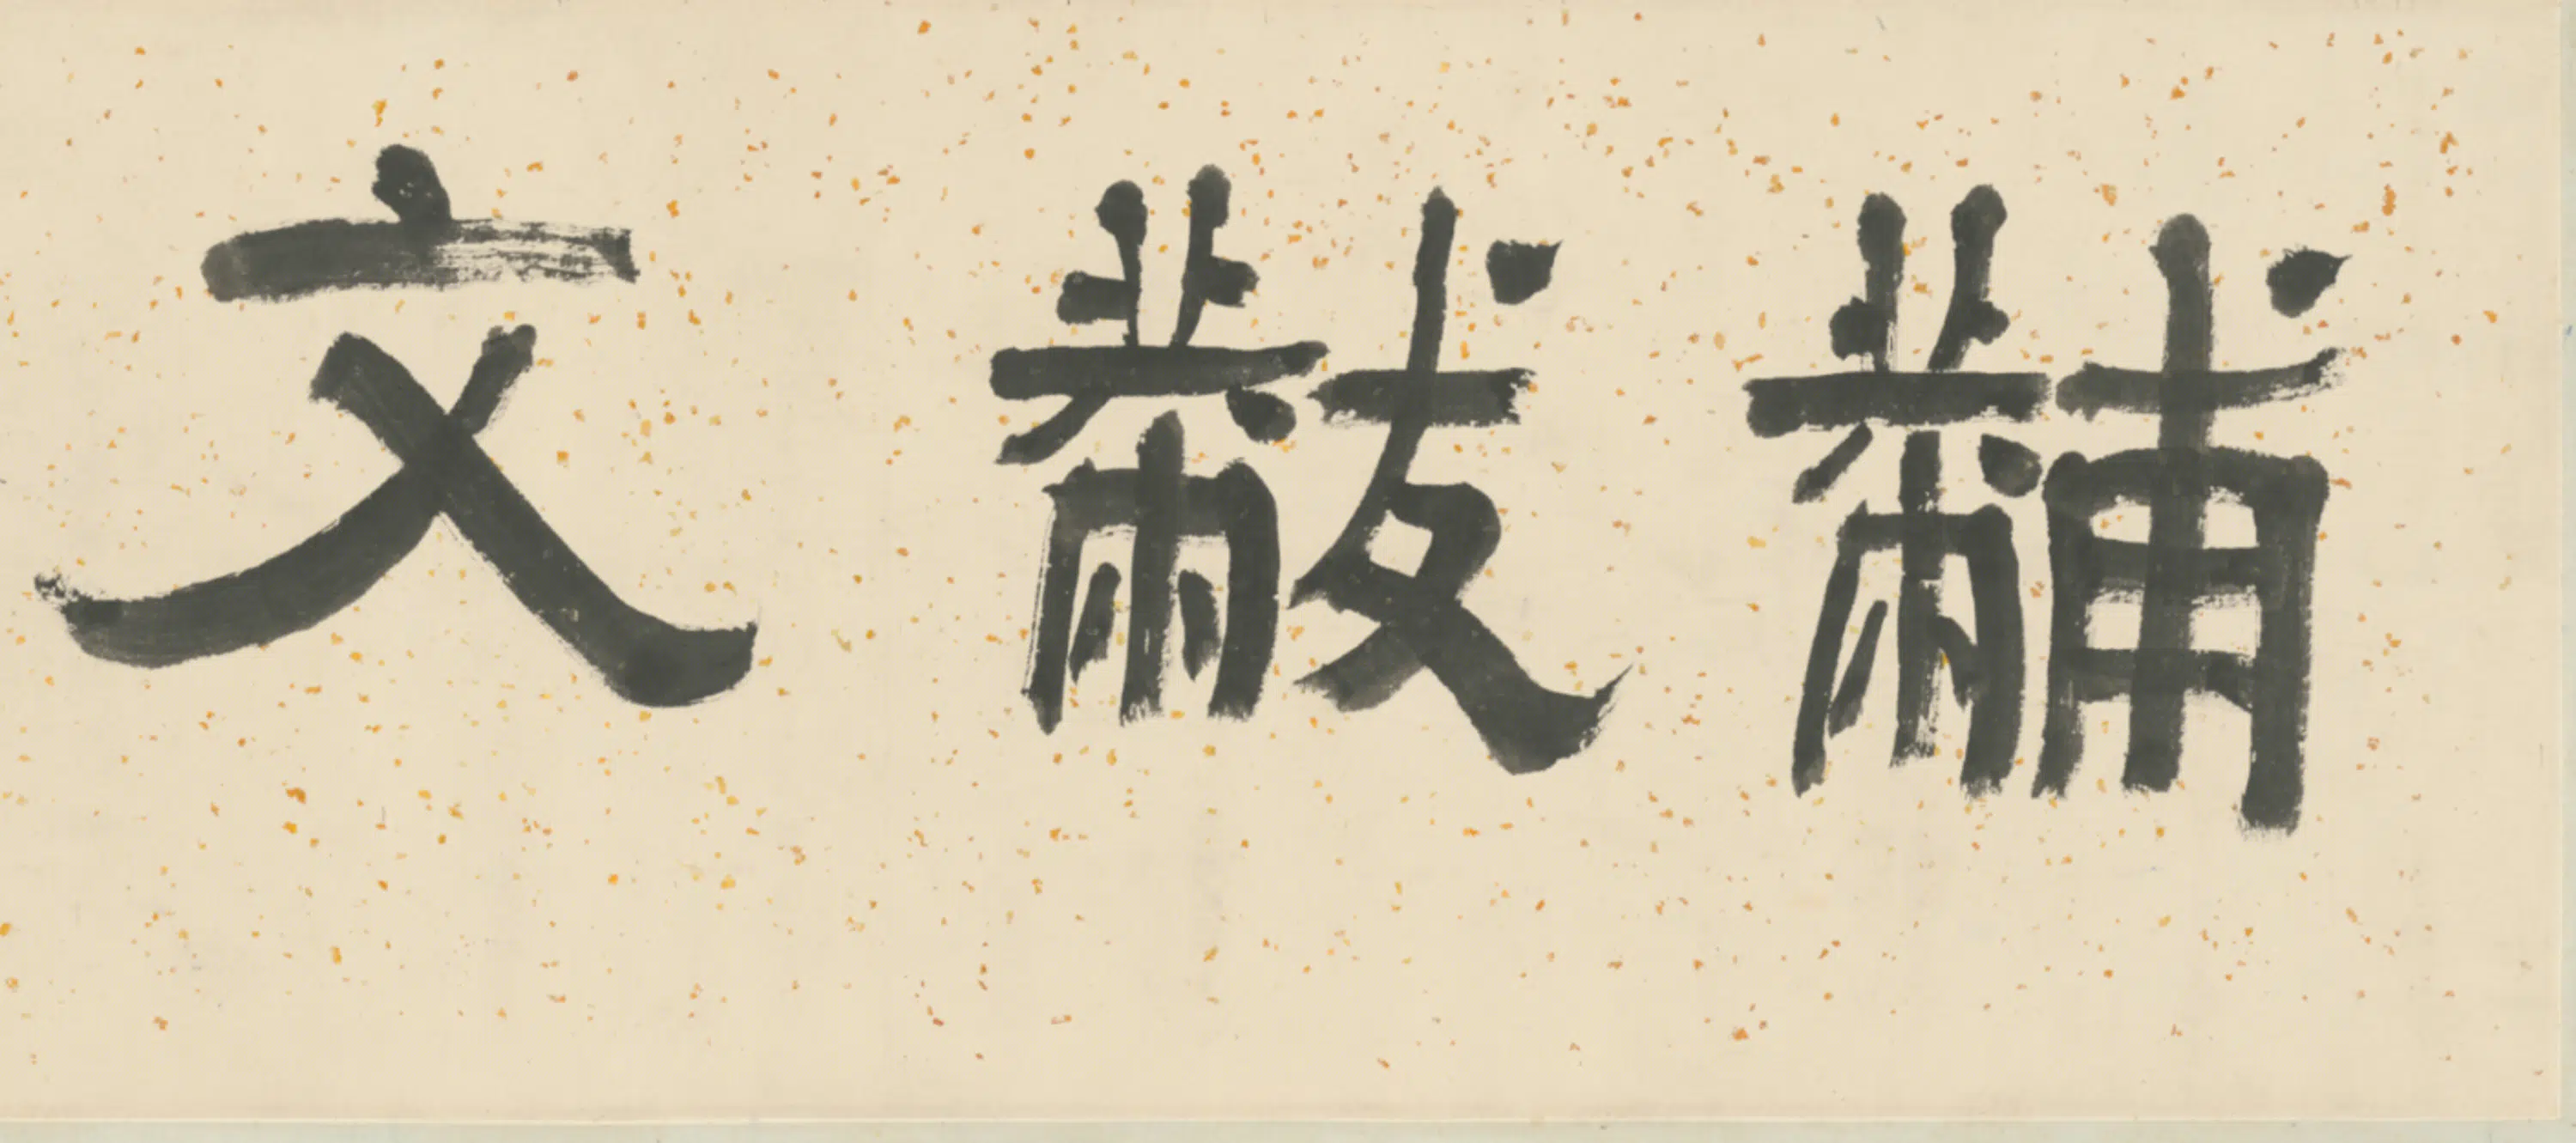 黼黻文